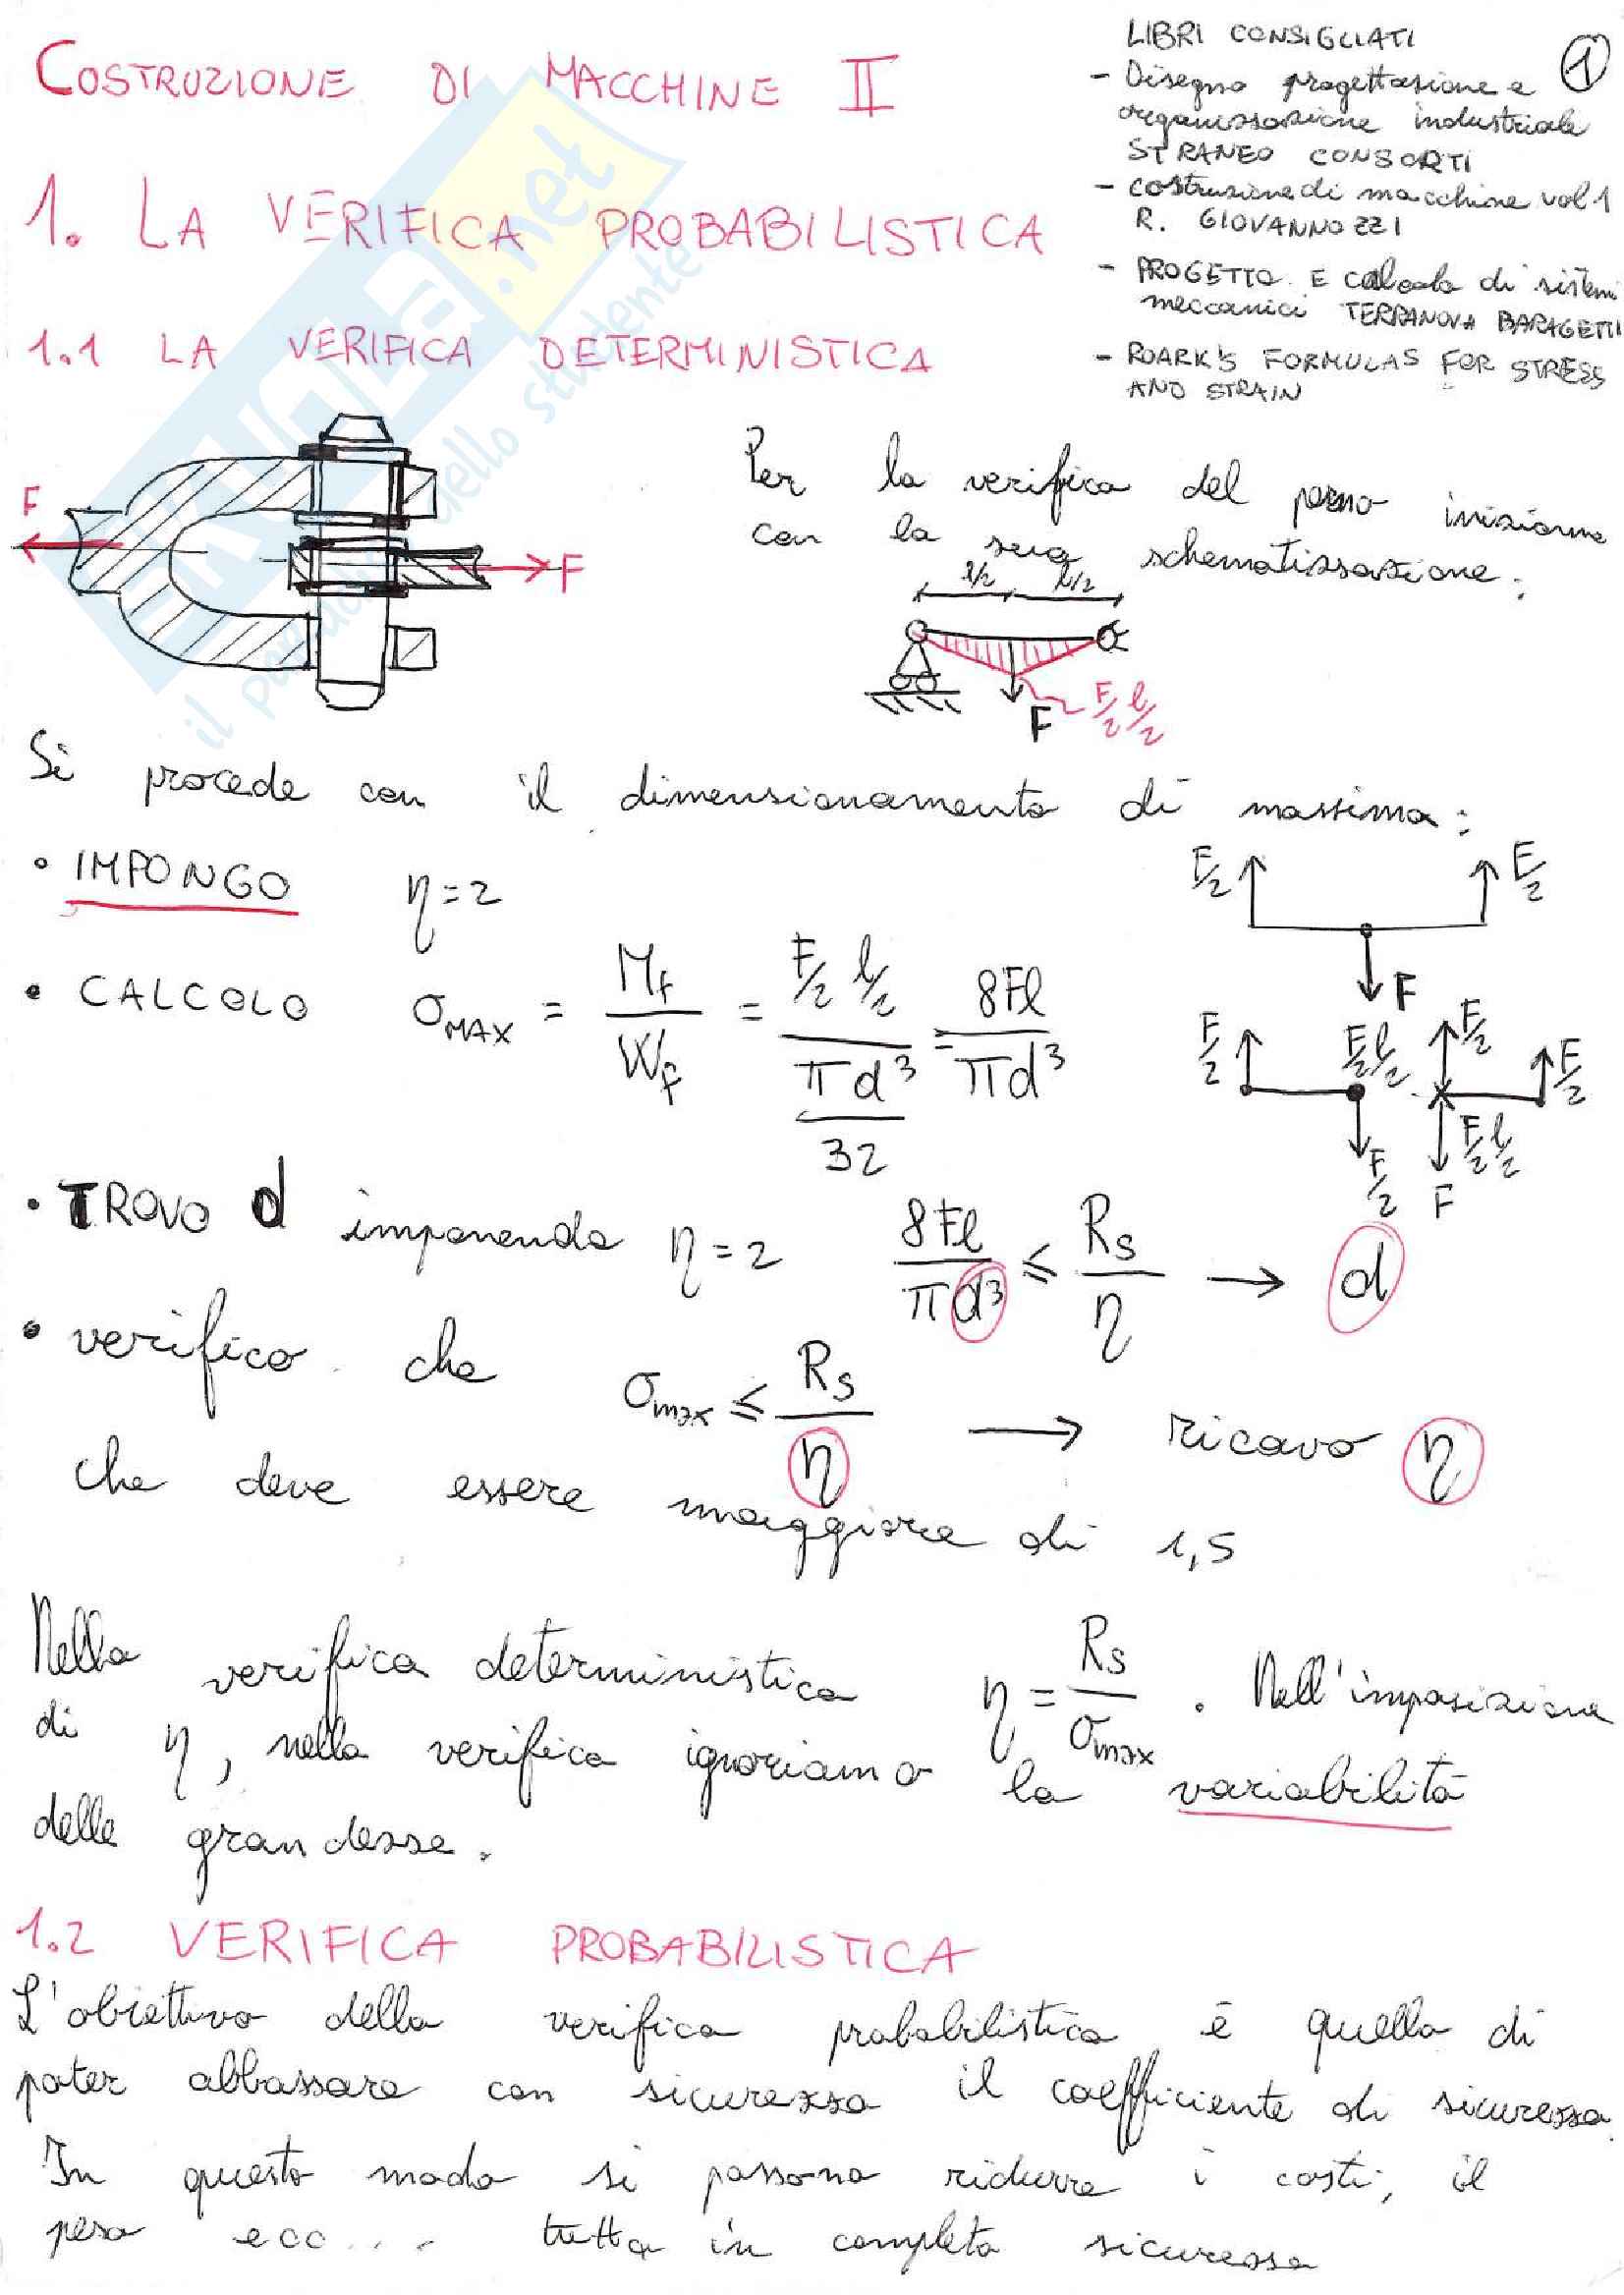 COSTRUZIONE DI MACCHINE II
1. LA VERIFICA PROBABILISTICA
1.1 LA VERIFICA DETERMINISTICA
LIBRI CONSIGLIATI
1
- Disegno progettazione e
organizzazione industriale
STRANEO CONSORTI
- costruzione di macchine vol 1
R. GIOVANNOZZI
- PROGETTO E calcolo di sistemi
meccanici TERRANOVA BARAGETTI
- ROARK'S FORMULAS FOR STRESS
AND STRAIN
SKUOLA.net
il paradiso dello studente
F
F
Per la verifica del perno iniziamo
con la sua schematizzazione:
l/2 l/2
F
F/2 l/2
Si procede con il dimensionamento di massima:
• IMPONGO η = 2
• CALCOLO σMAX = Mf / Wf = (F/2 l/2) / (πd³/32) = 8Fl / πd³
F/2 F/2
F
F/2 F/2 l/2 F/2 F/2
F/2 F F/2 l/2
• TROVO d imponendo η = 2 8Fl / πd³ ≤ Rs / η → d
• verifico che σmax ≤ Rs / η → ricavo η
che deve essere maggiore di 1,5
Nella verifica deterministica η = Rs / σmax . Nell'imposizione
di η, nella verifica ignoriamo la variabilità
delle grandezze.
1.2 VERIFICA PROBABILISTICA
L'obiettivo della verifica probabilistica è quello di
poter abbassare con sicurezza il coefficiente di sicurezza.
In questo modo si possono ridurre i costi, il
peso ecc.... tutto in completa sicurezza